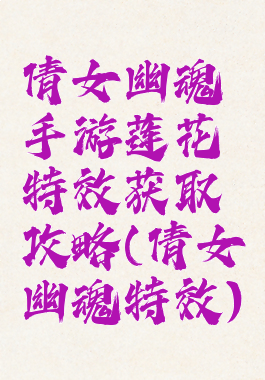 倩女幽魂
手游莲花
特效获取
攻略(倩女
幽魂特效)